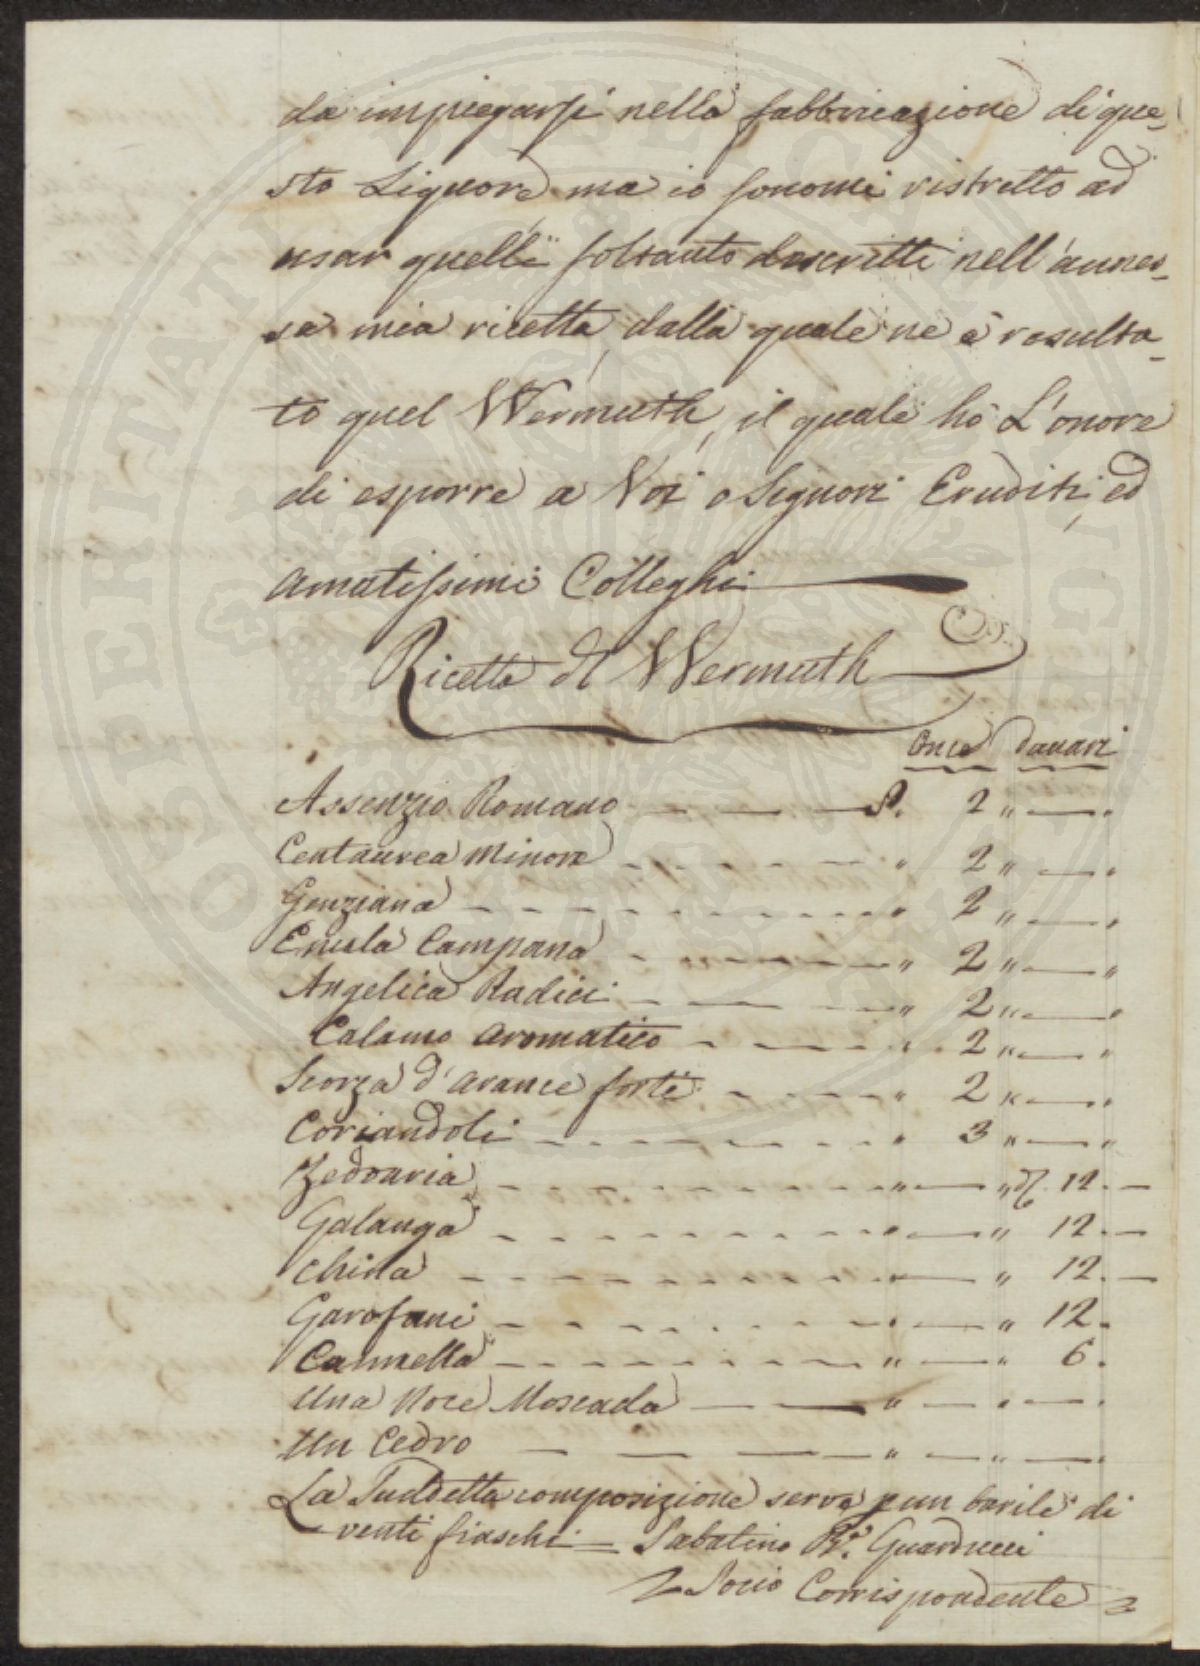 da impiegarsi nella fabbricazione di que-
sto Liquore, ma io sonomi ristretto ad
usar quelli soltanto descritti nell'annes-
sa mia ricetta, dalla quale ne è resulta-
to quel Wermuth, il quale ho L'onore
di esporre a Voi o Signori Eruditi, ed
amatissimi Colleghi
Ricetta di Wermuth
Once Danari
Assenzio Romano — — — P. 2 " — "
Centaurea Minore - - - " 2 " — "
Genziana - - - " 2 " — "
Enula Campana - - - " 2 " — "
Angelica Radici - - - " 2 " — "
Calamo aromatico - - - " 2 " — "
Scorza d'arance forti - - - " 2 " — "
Coriandoli - - - " 3 " — "
Zedoaria - - - " — " d. 12. —
Galanga - - - " — " 12. —
China - - - " — " 12. —
Garofani - - - " — " 12.
Cannella - - - " — " 6.
Una Noce Moscada — — " — " — .
Un Cedro — — — " — " — .
La Suddetta composizione serve p un barile di
venti fiaschi = Sabatino Guarducci
Socio Corrispondente
PROSPERITATI PUBLICAE AUGENDAE